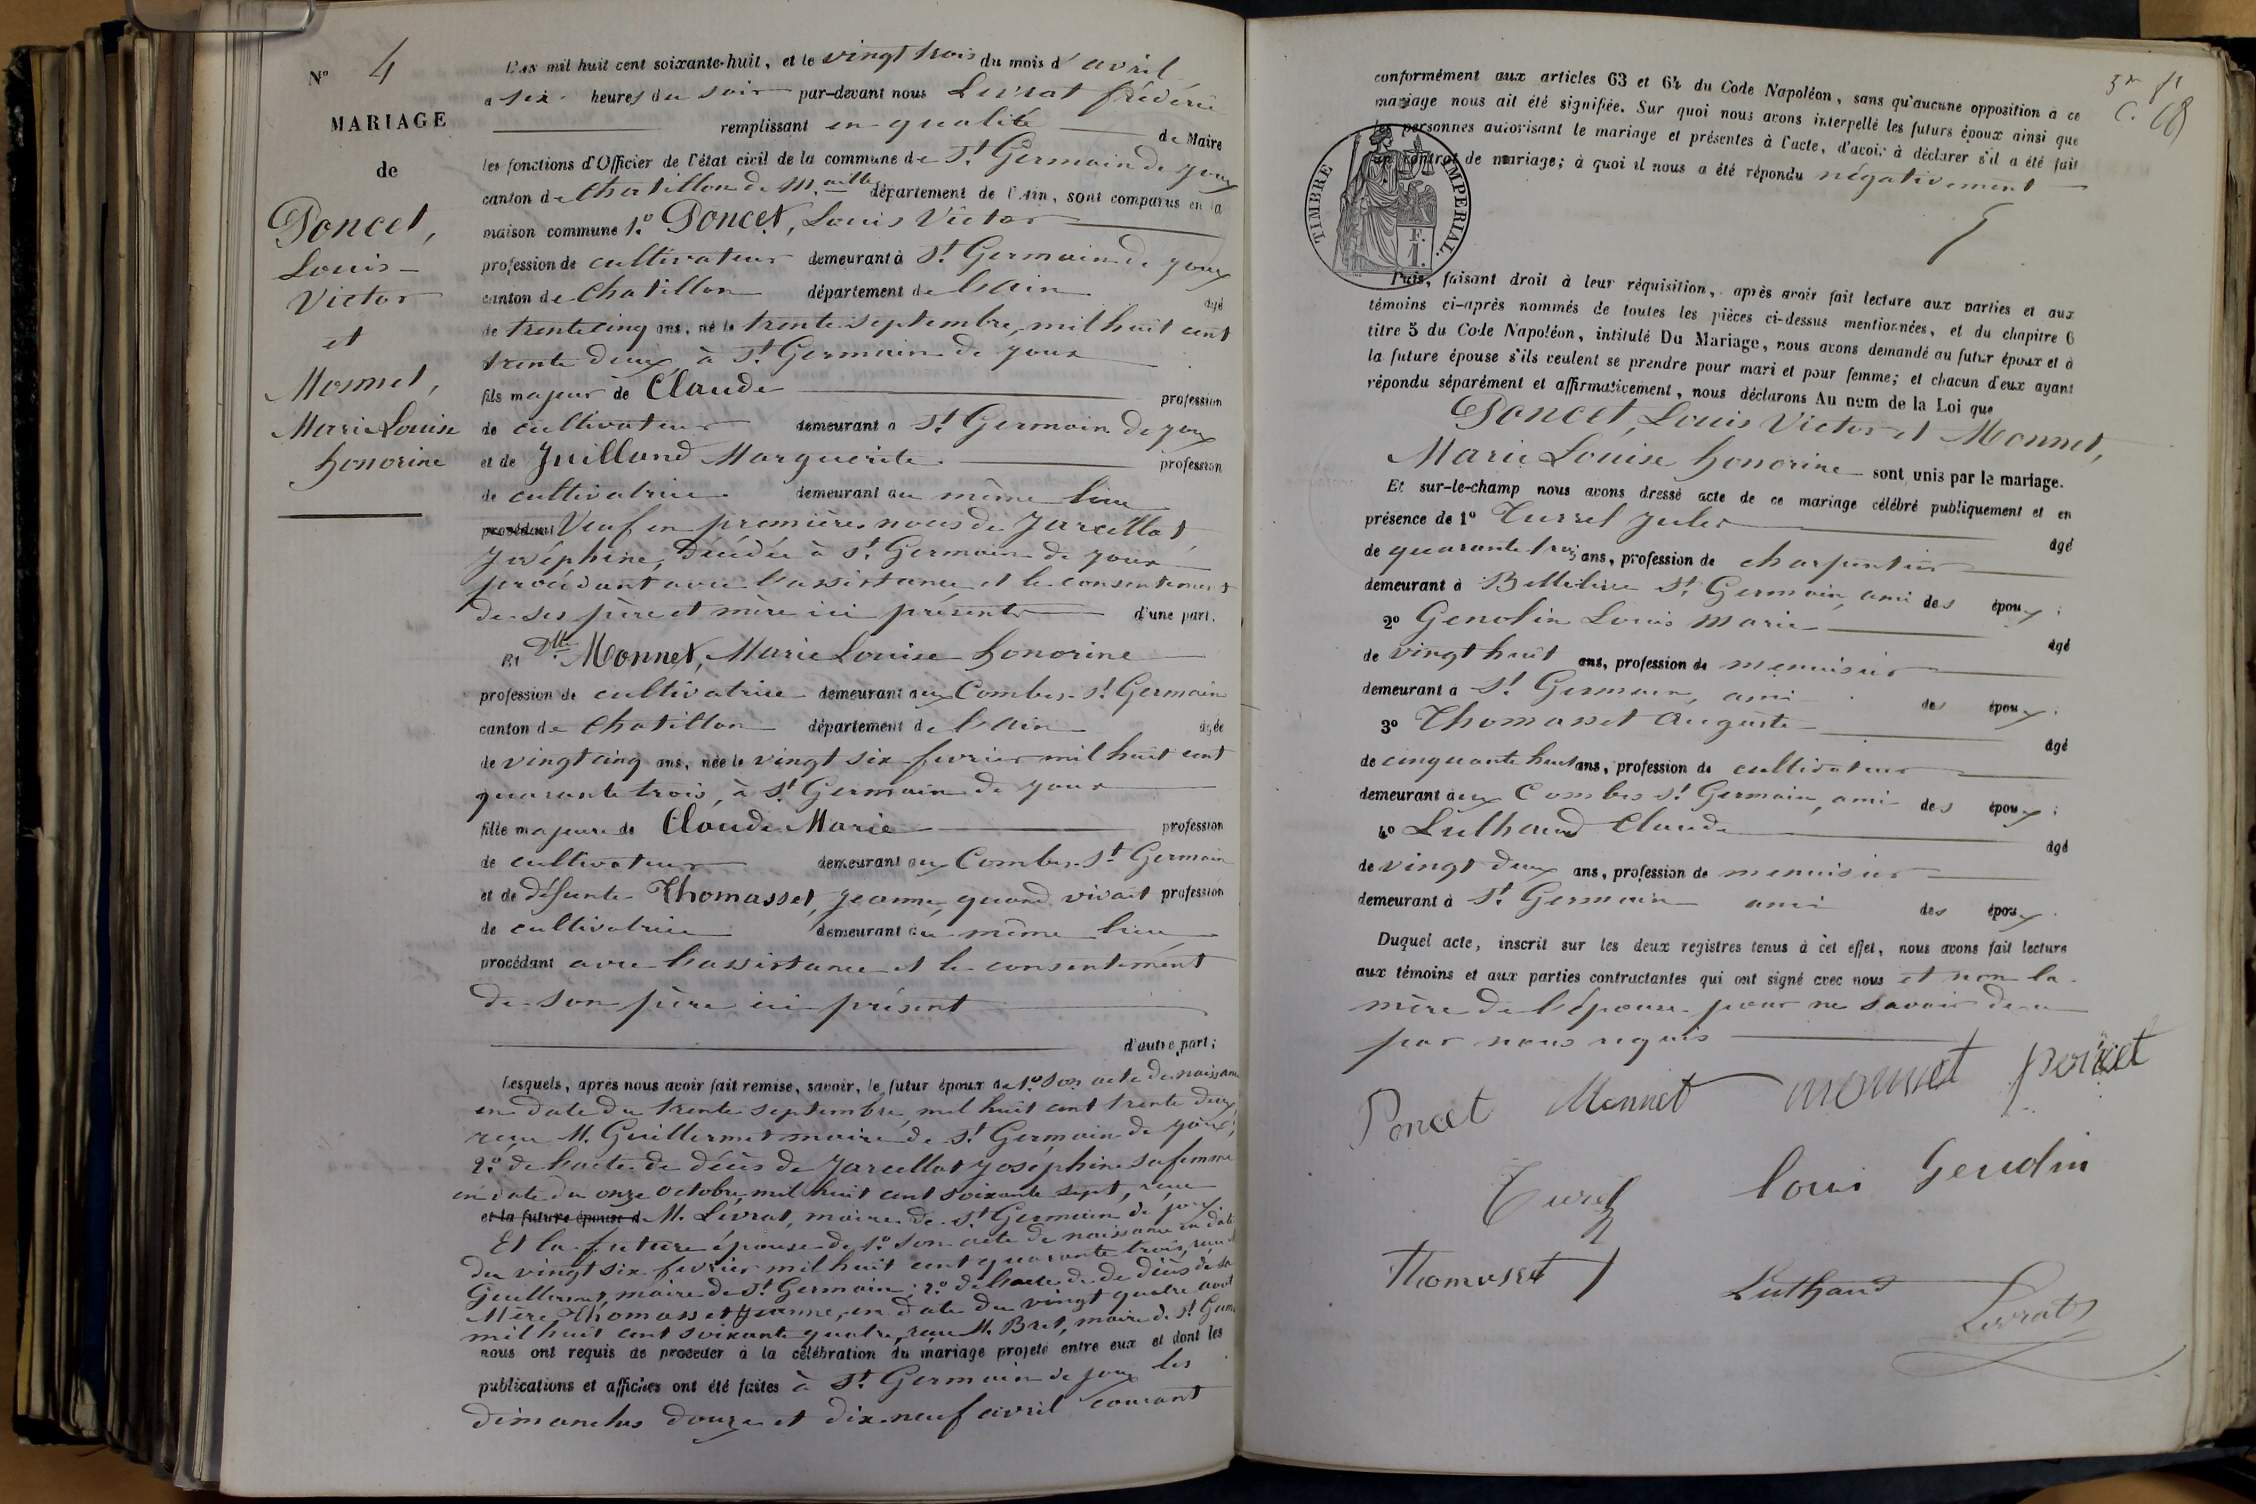 N° 4
MARIAGE
de
Poncet,
Louis-
Victor
et
Monnet,
Marie Louise
honorine
L'an mil huit cent soixante-huit, et le vingt trois du mois d'avril
a six heures du soir par-devant nous Livrat frédéric
remplissant en qualité de Maire
les fonctions d'Officier de l'état civil de la commune de St Germain de joux
canton de Chatillon de M.aille département de l'Ain, sont comparus en la
maison commune 1.° Poncet, Louis Victor
profession de cultivateur demeurant à St Germain de joux
canton de Chatillon département de l'ain âgé
de trente cinq ans, né le trente septembre, mil huit cent
trente deux à St Germain de joux
fils majeur de Claude profession
de cultivateur demeurant à St Germain de joux
et de Juilland Marguerite profession
de cultivatrice demeurant au même lieu
procédant Veuf en premières noces de Jarcellat,
Joséphine, décédée à St Germain de joux
procédant avec l'assistance et le consentement
de ses père et mère ici présents d'une part.
Et Dlle Monnet, Marie Louise honorine
profession de cultivatrice demeurant aux Combes St Germain
canton de Chatillon département de l'ain âgée
de vingt cinq ans, née le vingt six fevrier mil huit cent
quarante trois, à St Germain de joux
fille majeure de Claude Marie profession
de cultivateur demeurant aux Combes St Germain
et de défunte Thomasset, Jeanne, quand vivait profession
de cultivatrice demeurant au même lieu
procédant avec l'assistance et le consentement
de son père ici présent
d'autre part;
Lesquels, après nous avoir fait remise, savoir, le futur époux de 1.° son acte de naissance
en date du trente septembre, mil huit cent trente deux,
reçu M. Guillermet maire de St Germain de joux;
2.° de l'acte de décès de Jarcellat Joséphine sa femme
en date du onze octobre mil huit cent soixante sept, reçu
et la future épouse d M. Livrat, maire de St Germain de joux.
Et la future épouse de 1.° son acte de naissance en date
du vingt six fevrier mil huit cent quarante trois, reçu M.
Guillermet, maire de St Germain; 2.° de l'acte de de décès de sa
Mère Thomasset Jeanne, en date du vingt quatre avril
mil huit cent soixante quatre, reçu M. Bret, maire de St Germ
nous ont requis de procéder à la célébration du mariage projeté entre eux et dont les
publications et affiches ont été faites à St Germain de joux les
dimanches douze et dix-neuf avril courant
conformément aux articles 63 et 64 du Code Napoléon, sans qu'aucune opposition à ce
mariage nous ait été signifiée. Sur quoi nous avons interpellé les futurs époux ainsi que
les personnes autorisant le mariage et présentes à l'acte, d'avoir à déclarer s'il a été fait
un contrat de mariage; à quoi il nous a été répondu négativement
TIMBRE IMPERIAL.
F.
1.
Puis, faisant droit à leur réquisition, après avoir fait lecture aux parties et aux
témoins ci-après nommés de toutes les pièces ci-dessus mentionnées, et du chapitre 6
titre 5 du Code Napoléon, intitulé Du Mariage, nous avons demandé au futur époux et à
la future épouse s'ils veulent se prendre pour mari et pour femme; et chacun d'eux ayant
répondu séparément et affirmativement, nous déclarons Au nom de la Loi que
Poncet, Louis Victor et Monnet,
Marie Louise honorine sont unis par le mariage.
Et sur-le-champ nous avons dressé acte de ce mariage célébré publiquement et en
présence de 1° Turrel Jules âgé
de quarante trois ans, profession de charpentier
demeurant à Bellelive St Germain, ami des époux;
2° Genolin Louis Marie âgé
de vingt huit ans, profession de menuisier
demeurant à St Germain, ami des époux;
3° Thomasset Auguste âgé
de cinquante huit ans, profession de cultivateur
demeurant aux Combes St Germain, ami des époux;
4° Luthaud Claude âgé
de vingt deux ans, profession de menuisier
demeurant à St Germain ami des époux.
Duquel acte, inscrit sur les deux registres tenus à cet effet, nous avons fait lecture
aux témoins et aux parties contractantes qui ont signé avec nous et non la
mère de l'épouse pour ne savoir de ce
par nous requis
Poncet Monnet monnet poncet
Turel Loui Genolin
Thomaset Luthaud
Livrat